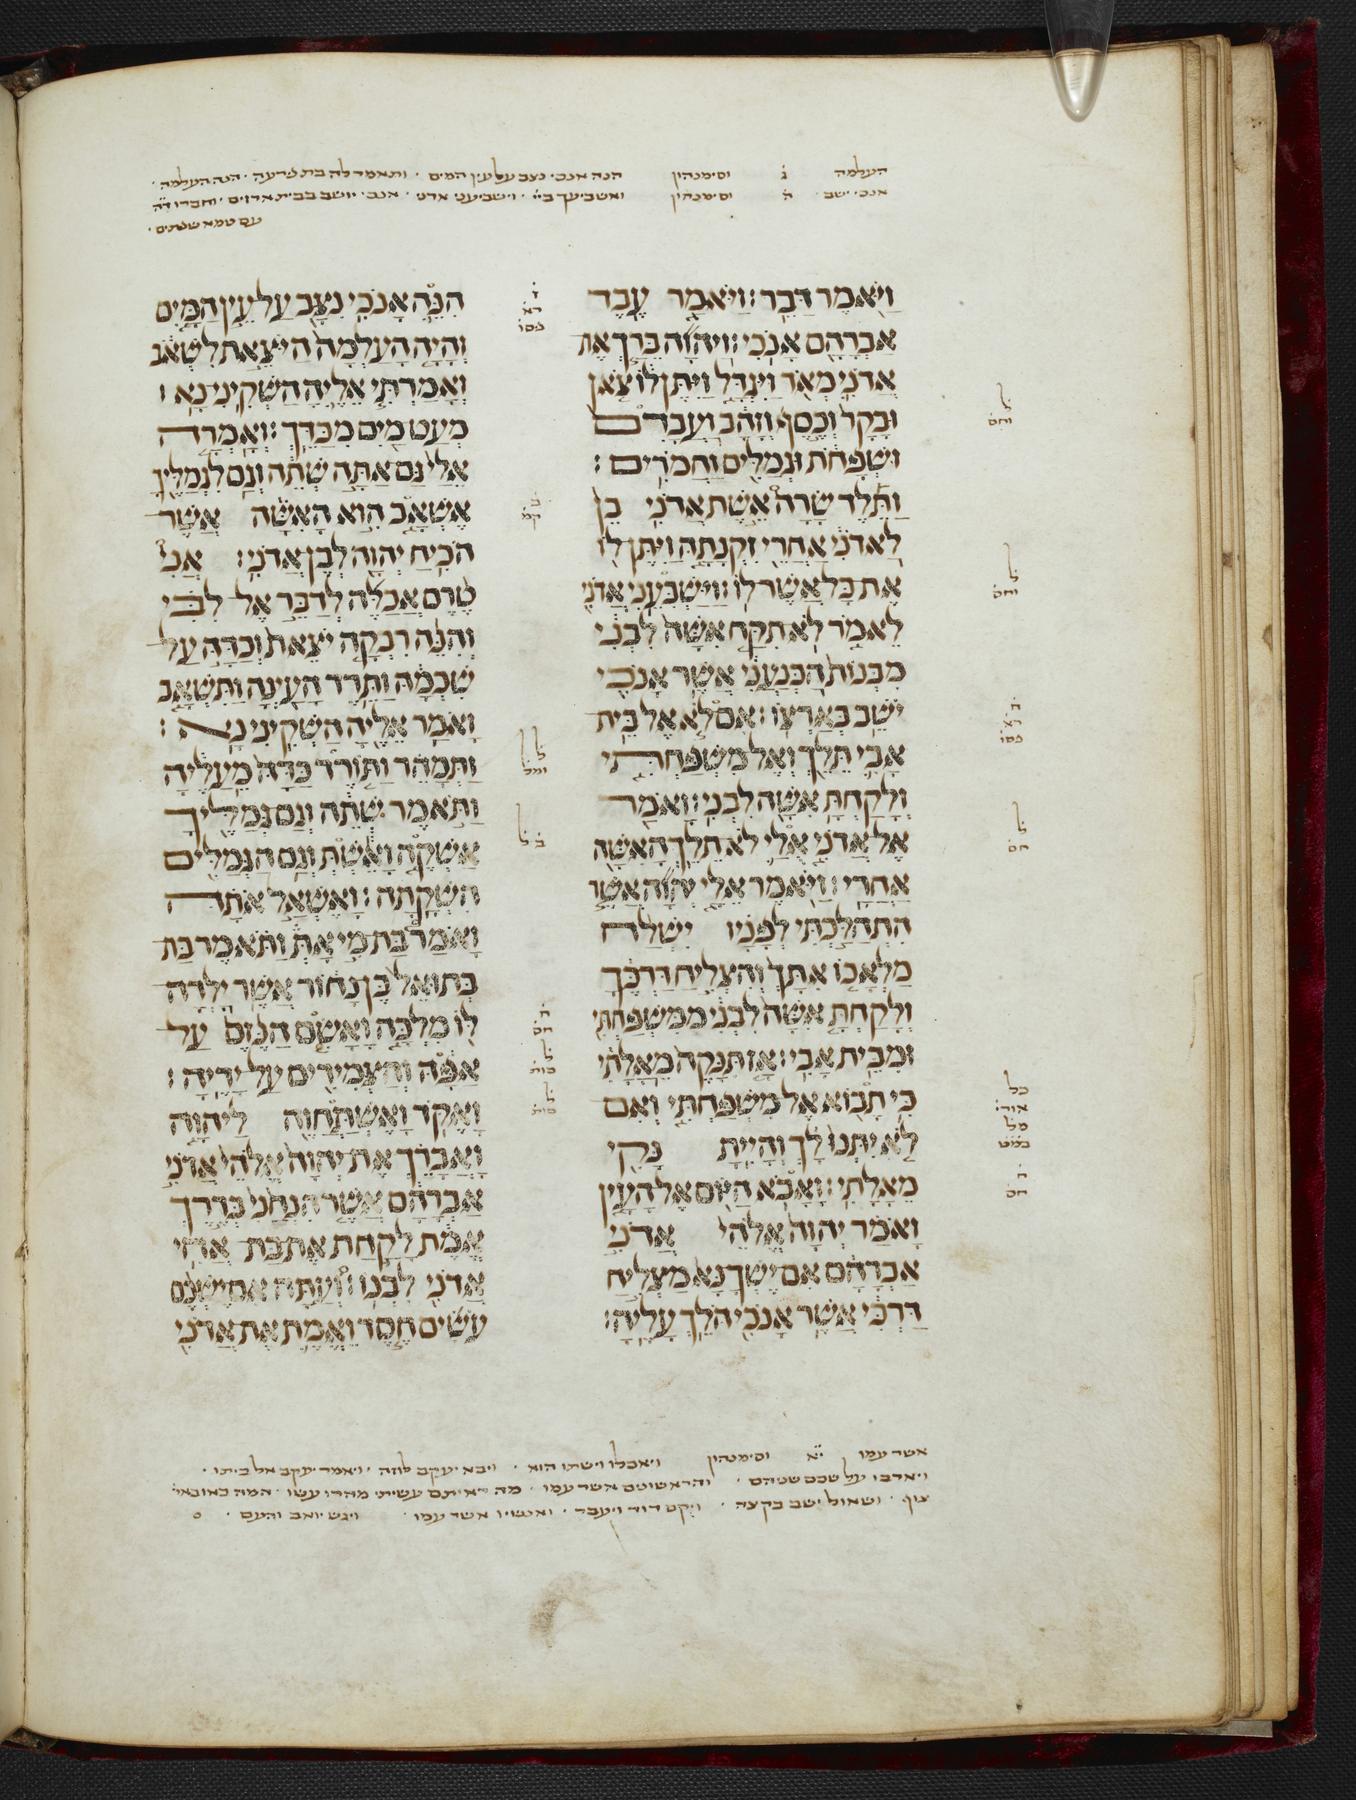 העלמה ג֗ וסימנהון הנה אנכי נצב על עין המים · ותאמר לה בת פרעה · הנה העלמה ·
אנכי ישב ה֗ וסימנהון ואשביעך בי֗י֗ · וישביעני אדני · אנכי יושב בבית ארזים · וחברו
עם טמא שפתים ·
וַיֹּאמֶר דַּבֵּר׃ וַיֹּאמַר עֶבֶד
אַבְרָהָם אָנֹכִי׃ וַיהוָה בֵּרַךְ אֶת
אֲדֹנִי מְאֹד וַיִּגְדָּל וַיִּתֶּן לוֹ צֹאן
וּבָקָר וְכֶסֶף וְזָהָב וַעֲבָדִם
וּשְׁפָחֹת וּגְמַלִּים וַחֲמֹרִים׃
וַתֵּלֶד שָׂרָה אֵשֶׁת אֲדֹנִי בֵן
לַאדֹנִי אַחֲרֵי זִקְנָתָהּ וַיִּתֶּן לוֹ
אֶת כָּל אֲשֶׁר לוֹ׃ וַיַּשְׁבִּעֵנִי אֲדֹנִי
לֵאמֹר לֹא תִקַּח אִשָּׁה לִבְנִי
מִבְּנוֹת הַכְּנַעֲנִי אֲשֶׁר אָנֹכִי
יֹשֵׁב בְּאַרְצוֹ׃ אִם לֹא אֶל בֵּית
אָבִי תֵּלֵךְ וְאֶל מִשְׁפַּחְתִּי
וְלָקַחְתָּ אִשָּׁה לִבְנִי׃ וָאֹמַר
אֶל אֲדֹנִי אֻלַי לֹא תֵלֵךְ הָאִשָּׁה
אַחֲרָי׃ וַיֹּאמֶר אֵלָי יְהוָה אֲשֶׁר
הִתְהַלַּכְתִּי לְפָנָיו יִשְׁלַח
מַלְאָכוֹ אִתָּךְ וְהִצְלִיחַ דַּרְכֶּךָ
וְלָקַחְתָּ אִשָּׁה לִבְנִי מִמִּשְׁפַּחְתִּי
וּמִבֵּית אָבִי׃ אָז תִּנָּקֶה מֵאָלָתִי
כִּי תָבוֹא אֶל מִשְׁפַּחְתִּי וְאִם
לֹא יִתְּנוּ לָךְ וְהָיִיתָ נָקִי
מֵאָלָתִי׃ וָאָבֹא הַיּוֹם אֶל הָעָיִן
וָאֹמַר יְהוָה אֱלֹהֵי אֲדֹנִי
אַבְרָהָם אִם יֶשְׁךָ נָּא מַצְלִיחַ
דַּרְכִּי אֲשֶׁר אָנֹכִי הֹלֵךְ עָלֶיהָ׃
הִנֵּה אָנֹכִי נִצָּב עַל עֵין הַמָּיִם
וְהָיָה הָעַלְמָה הַיֹּצֵאת לִשְׁאֹב
וְאָמַרְתִּי אֵלֶיהָ הַשְׁקִינִי נָא׃
מְעַט מַיִם מִכַּדֵּךְ׃ וְאָמְרָה
אֵלַי גַּם אַתָּה שְׁתֵה וְגַם לִגְמַלֶּיךָ
אֶשְׁאָב הִוא הָאִשָּׁה אֲשֶׁר
הֹכִיחַ יְהוָה לְבֶן אֲדֹנִי׃ אֲנִי
טֶרֶם אֲכַלֶּה לְדַבֵּר אֶל לִבִּי
וְהִנֵּה רִבְקָה יֹצֵאת וְכַדָּהּ עַל
שִׁכְמָהּ וַתֵּרֶד הָעַיְנָה וַתִּשְׁאָב
וָאֹמַר אֵלֶיהָ הַשְׁקִינִי נָא׃
וַתְּמַהֵר וַתּוֹרֶד כַּדָּהּ מֵעָלֶיהָ
וַתֹּאמֶר שְׁתֵה וְגַם גְּמַלֶּיךָ
אַשְׁקֶה וָאֵשְׁתְּ וְגַם הַגְּמַלִּים
הִשְׁקָתָה׃ וָאֶשְׁאַל אֹתָהּ
וָאֹמַר בַּת מִי אַתְּ וַתֹּאמֶר בַּת
בְּתוּאֵל בֶּן נָחוֹר אֲשֶׁר יָלְדָה
לּוֹ מִלְכָּה וָאָשִׂם הַנֶּזֶם עַל
אַפָּהּ וְהַצְּמִידִים עַל יָדֶיהָ׃
וָאֶקֹּד וָאֶשְׁתַּחֲוֶה לַיהוָה
וָאֲבָרֵךְ אֶת יְהוָה אֱלֹהֵי אֲדֹנִי
אַבְרָהָם אֲשֶׁר הִנְחַנִי בְּדֶרֶךְ
אֱמֶת לָקַחַת אֶת בַּת אֲחִי
אֲדֹנִי לִבְנוֹ׃ וְעַתָּה אִם יֶשְׁכֶם
עֹשִׂים חֶסֶד וֶאֱמֶת אֶת אֲדֹנִי
אשר עמו י֗א֗ וסימנהון ויאכלו וישתו הוא · ויבא יעקב לוזה · ויאמר יעקב אל ביתו ·
וירבו על שכם שניהם · והראשונים אשר עמו · מה ראיתם עשיתי מהרו עשו · המה באו בארץ
צוף · ושאול ישב בקצה · ויקם דוד ויעבר · ואנשיו אשר עמו · ויגש יואב והעם ·